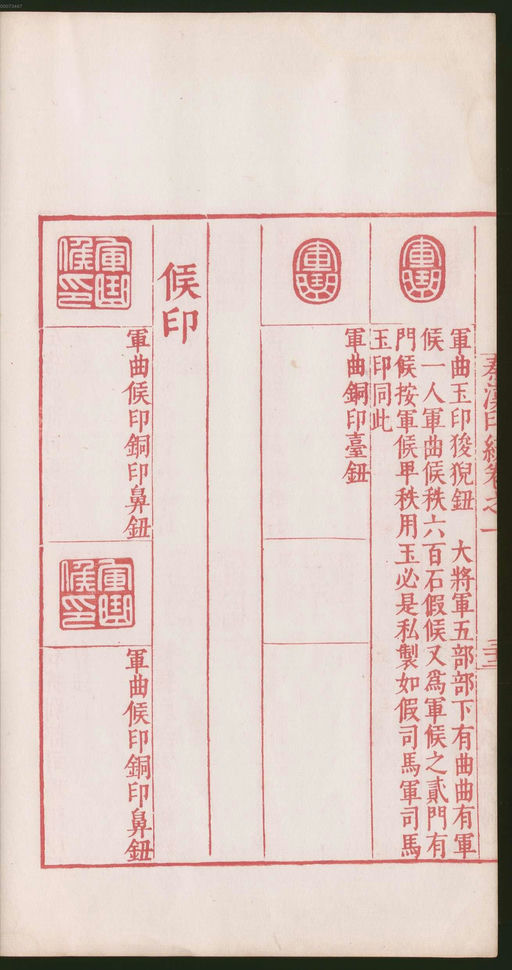 00073447
秦漢印統卷之一
軍曲
軍曲玉印狻猊鈕 大將軍五部部下有曲曲有軍
候一人軍曲候秩六百石假候又爲軍候之貳門有
門候按軍候卑秩用玉必是私製如假司馬軍司馬
玉印同此
軍曲
軍曲銅印臺鈕
候印
軍曲候印
軍曲候印銅印鼻鈕
軍曲候印
軍曲候印銅印鼻鈕